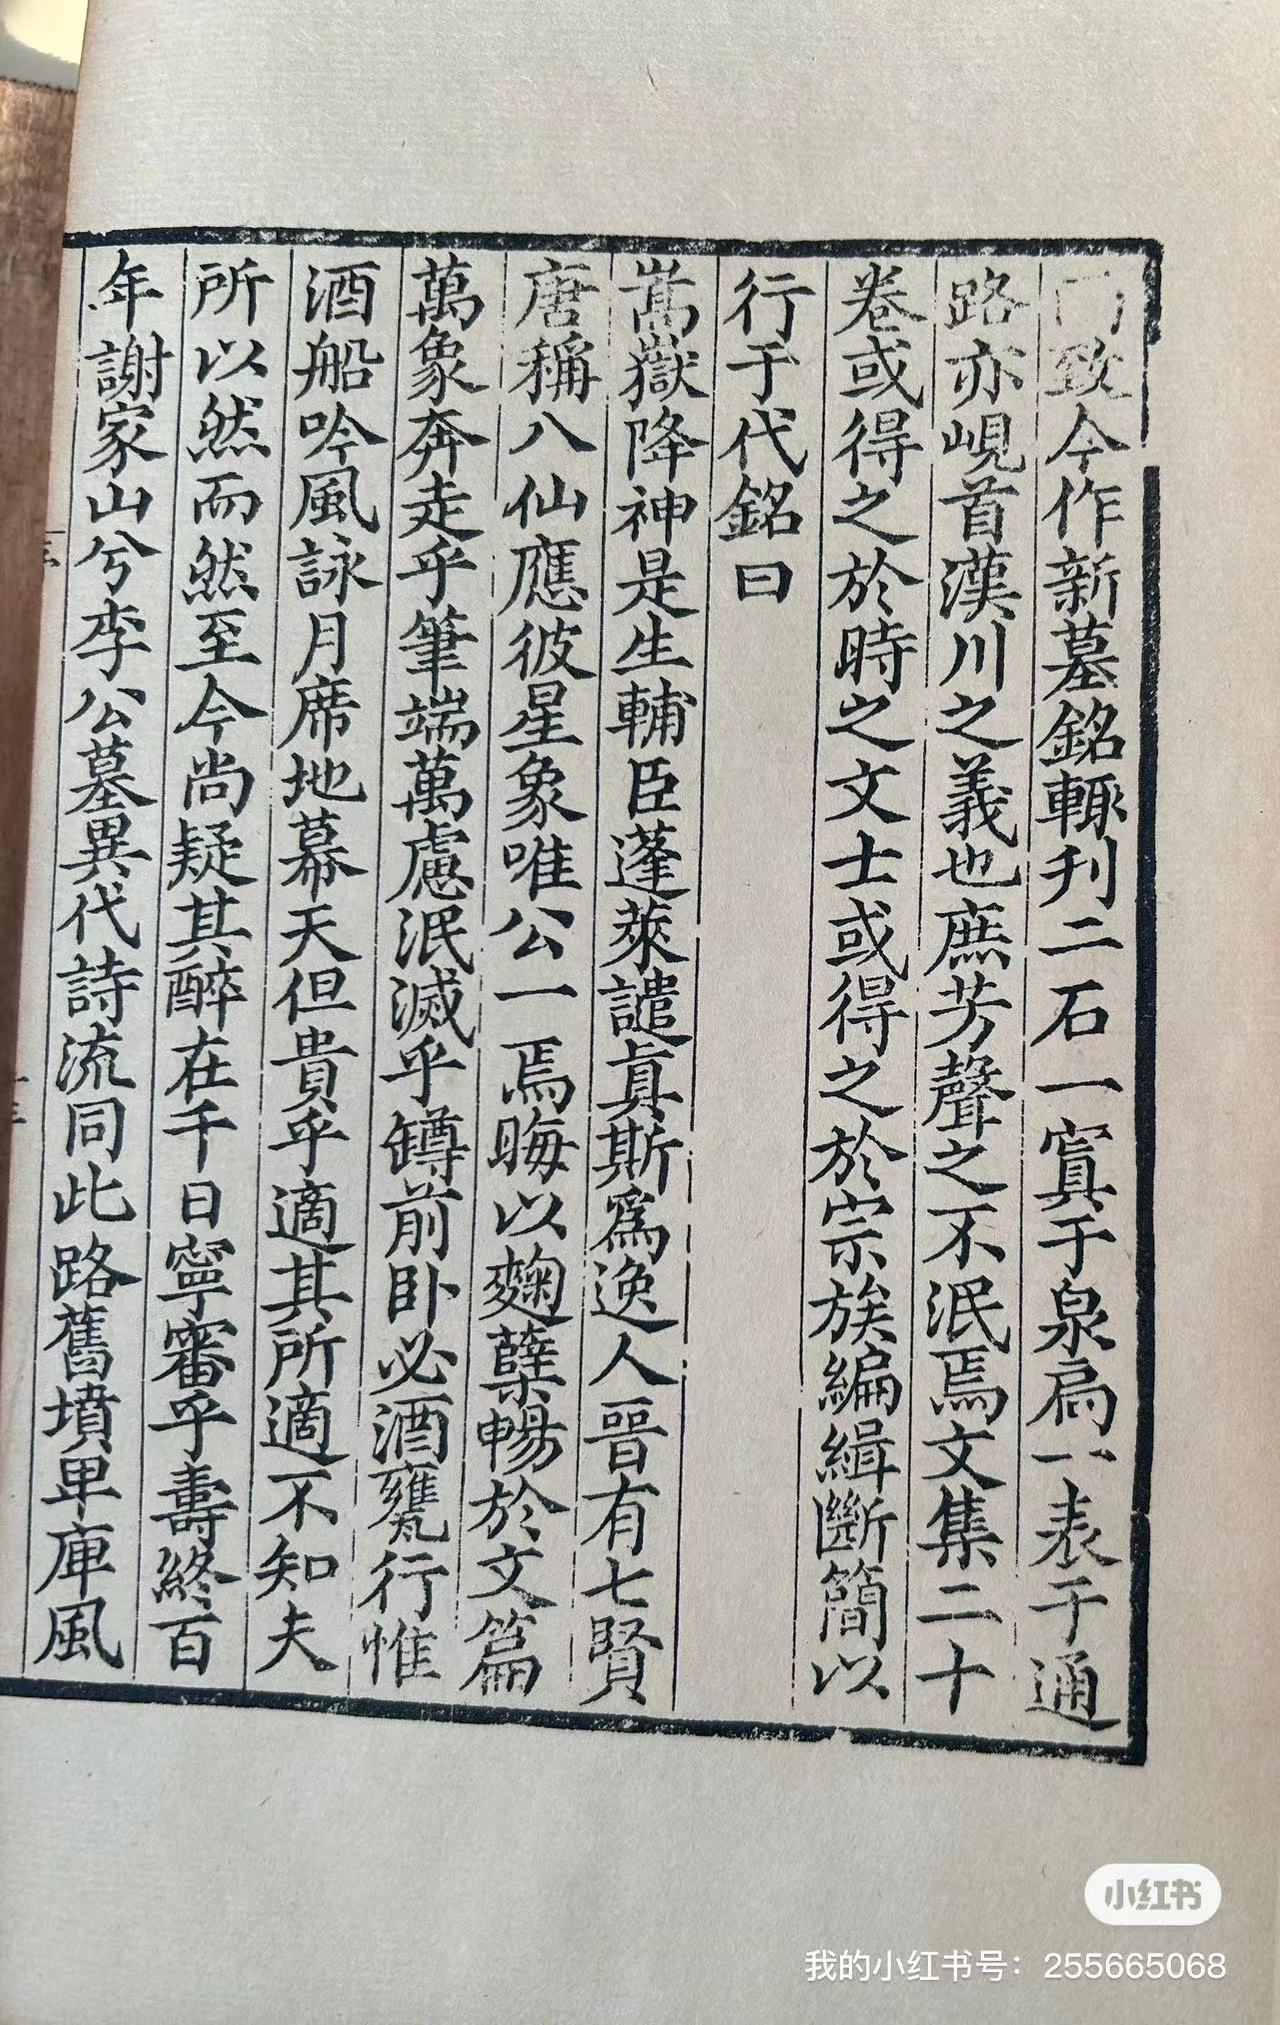 門致今作新墓銘輙刋二石一寘于泉扃一表于通
路亦峴首漢川之義也庶芳聲之不泯焉文集二十
卷或得之於時之文士或得之於宗族編緝斷簡以
行于代銘曰
嵩嶽降神是生輔臣蓬萊譴真斯爲逸人晉有七賢
唐稱八仙應彼星象唯公一焉晦以麴蘖暢於文篇
萬象奔走乎筆端萬慮泯滅乎罇前卧必酒甕行惟
酒船吟風詠月席地幕天但貴乎適其所適不知夫
所以然而然至今尚疑其醉在千日寧審乎壽終百
年謝家山兮李公墓異代詩流同此路舊墳卑庳風
小红书
我的小红书号：255665068